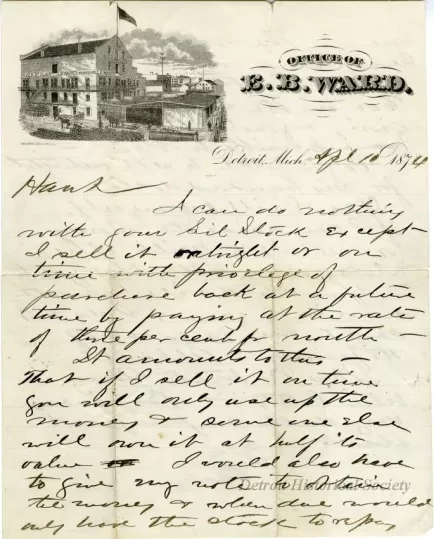 OFFICE OF
E. B. WARD.
Detroit, Mich. Apl 10 1874
Hank
I can do nothing
with your Sil Stock except
I sell it outright or on
time with privilege of
purchase back at a future
time by paying at the rate
of three per cent pr month —
It amounts to this —
That if I sell it on time
you will only use up the
money & some one else
will own it at half its
value I would also have
to give my note to obtain
the money & when due would
only have the stock to repay
Detroit Historical Society